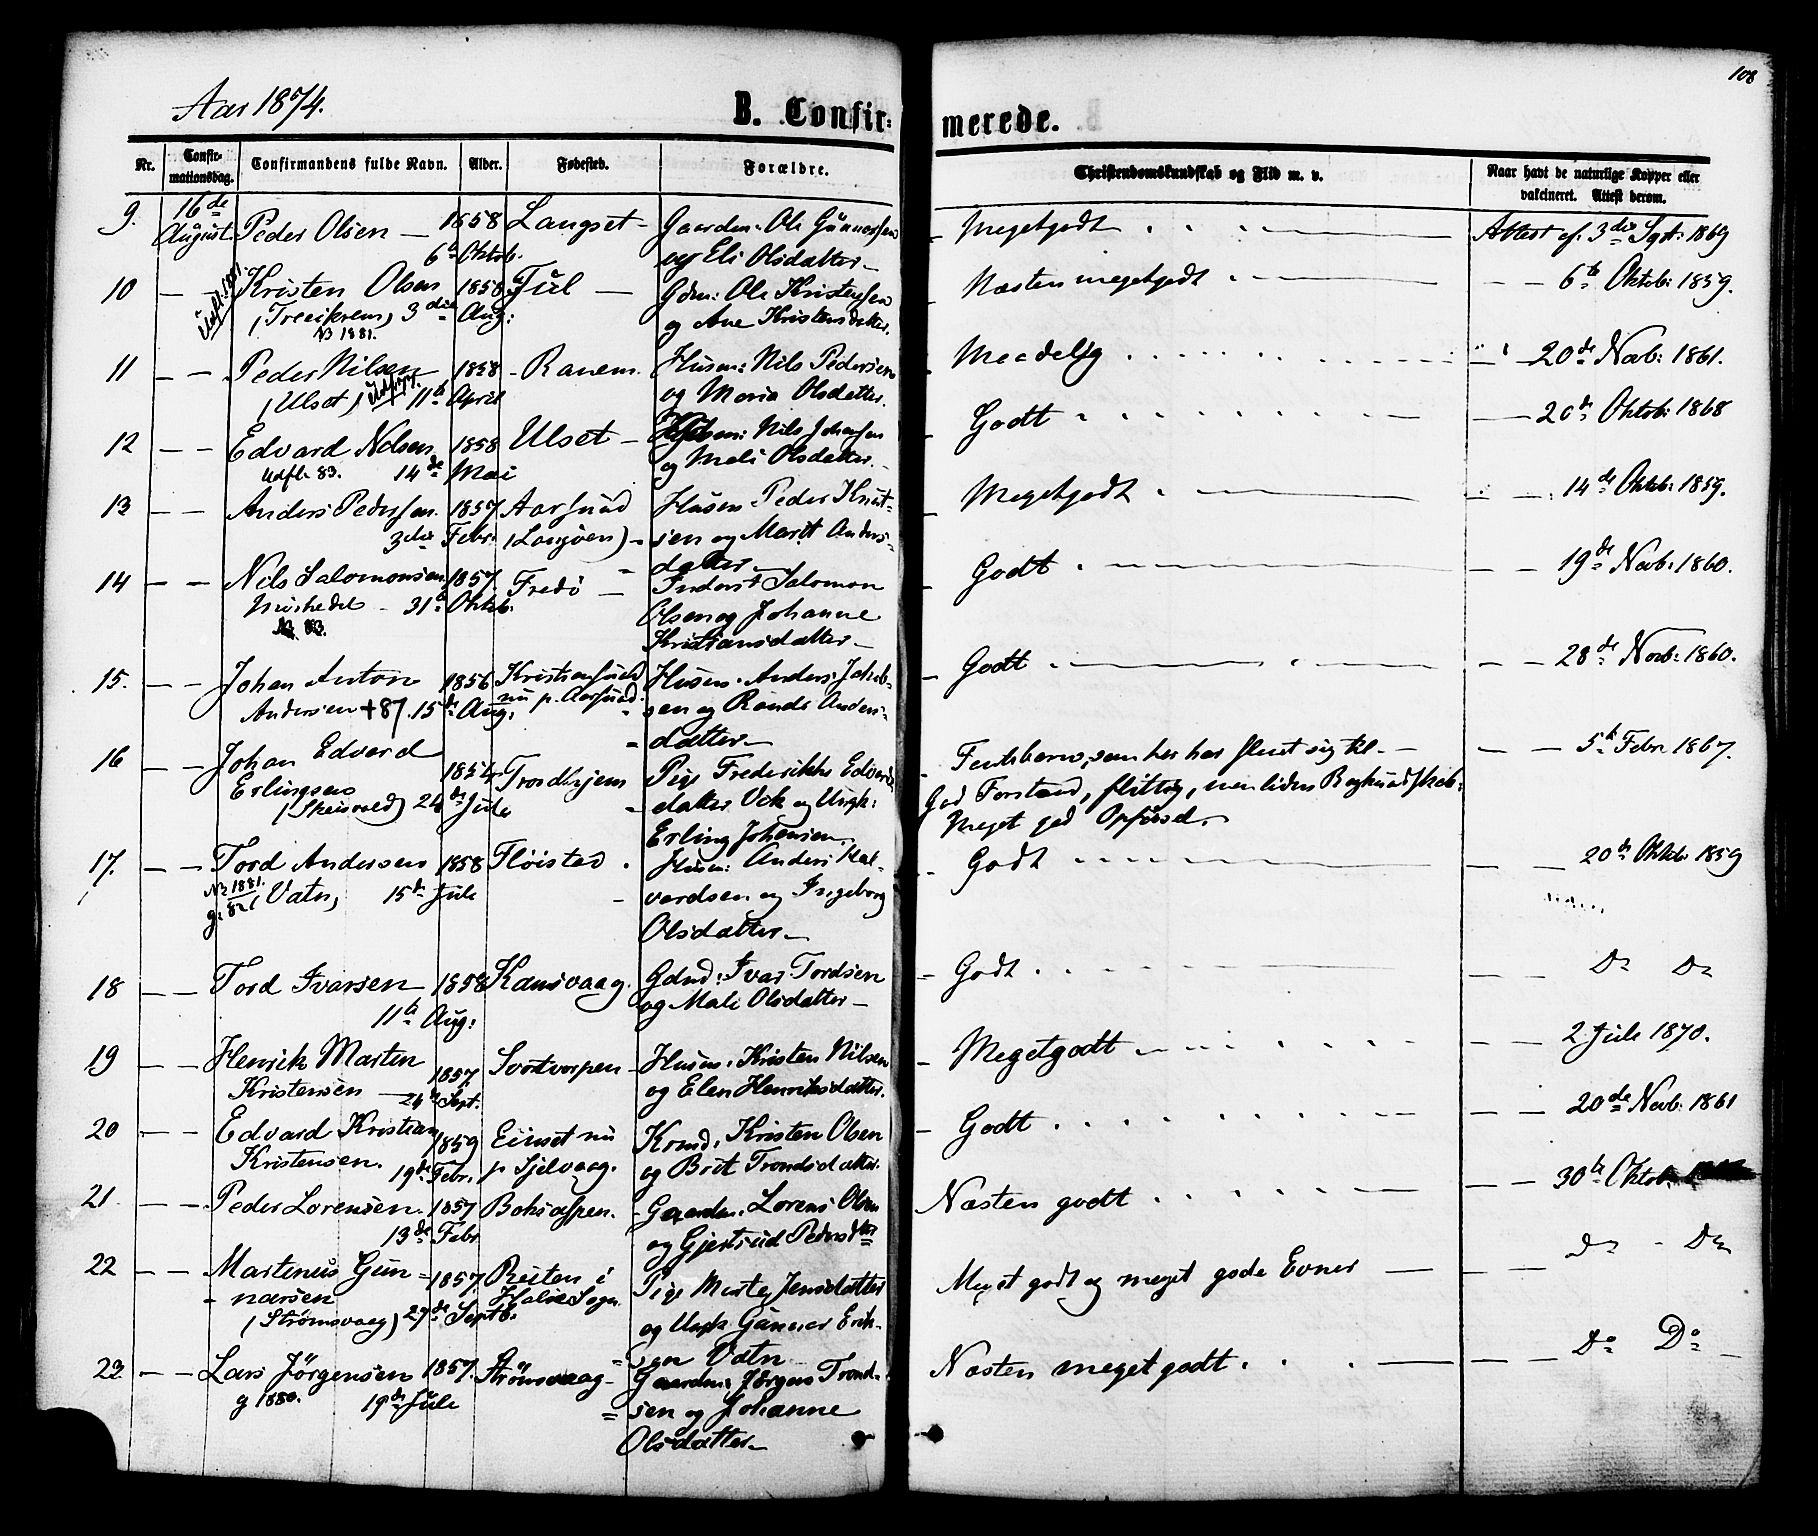 108
Aar 1874.
B. Confir-
merede.
Nr.
Confir-
mationsdag.
Confirmandens fulde Navn.
Alder.
Fødested.
Forældre.
Christendomskundskab og Flid m. v.
Naar havt de naturlige Kopper eller
vakcineret. Attest derom.
9. 16de August Peder Olsen — 1858 Langset — Gaardm: Ole Gunnarsen
6te Oktob. og Eli Olsdatter —
Megetgodt
Attest af 3die Sept: 1869
10 — — Kristen Olsen 1858 Juul — Gdm: Ole Kristensen
3die Aug: og Ane Kristensdatter.
1881.
Næsten megetgodt
— — 6te Oktob: 1859.
11 — — Peder Nilsen 1858 - Ranem. Husm: Nils Pedersen
(Ulset) 11te April og Maria Olsdatter.
Maadelig
20de Novb: 1861.
12 — — Edvard Nilsen 1858 Ulset — Nils Johansen
Udfl. 83. 14de Mai og Mali Olsdatter.
Godt
— 20de Oktob: 1868
13 — — Anders Pedersen. 1857 Aarsund Husm: Peder Knut-
3die Febr: (Langøen) — sen og Marit Anders-
datter —
Megetgodt
— — 14de Oktob: 1859.
14 — — Nils Salomonsen 1857. Fredø — Inderst Salomon
31te Oktob. Olsen og Johanne
Kristiansdatter —
Godt
— — 19de Novb: 1860.
15. — — Johan Anton 1856 Kristiansund Husm: Anders Jakob-
Andersen + 87. 15de Aug: nu p. Aarsund. sen og Randi Anders-
datter —
Godt
— — 28de Novb: 1860.
16 — — Johan Edvard 1854 Trondhjem Pige Frederikke Edvards-
Erlingsen datter Vik og Ungk:
(Skeisvold) 24de Jule Erling Johansen.
som her har
God Forstand, flittig, men liden Bogkundskab.
Meget god Opførsel.
— — 5te Febr 1867.
17. — — Tord Andersen 1858 Fløistad. Husm: Anders Hal-
1881. (Vatn) 15de Jule vardsen og Ingeborg
g. 82 Olsdatter —
Godt
— — 20de Oktob: 1859
18 — — Tord Ivarsen 1858 Kansvaag. Gdmd: Ivar Tordsen
11te Aug: og Mali Olsdatter —
Godt
— — Do Do
19 — — Henrik Martin 1857 Husm: Kristen Nilsen
Kristensen — 24de Sept. og Elen Henriksdatter.
Megetgodt
— — 2 Jule 1870.
20 — — Edvard Kristian 1859 Einset nu Kristen Olsen
Kristensen. 19de Febr. p Sjelvaag. og Brit Trondsdatter.
Godt
— — 20de Novb: 1861
21 — — Peder Lorensen. 1857 Gaardm. Lorens Olsen
13de Febr og Gjertrud Pedersdtr
Næsten godt
— — 30te Oktob:
22 — — Martinus Gun- 1857. Reiten i Pige Marte Jensdatter
narsen Halse Sogn. og Ungk. Gunnar Erik-
(Strømsvaag) 29de Septb. sen Vatn
Meget godt og meget gode Evner —
— — Do - Do
23 — — Lars Jörgensen 1857. Strömsvaag — Gaardm: Jørgen Trond-
g 1880. 19de Jule sen og Johanne
Olsdatter —
Næsten meget godt.
— — Do Do —